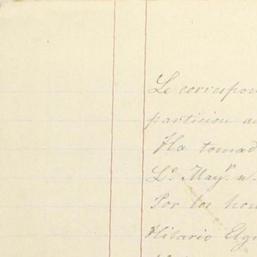 Le correspon
particion a
Ha tomad
L.º May.r n.
Por los hon
Hilario Elg